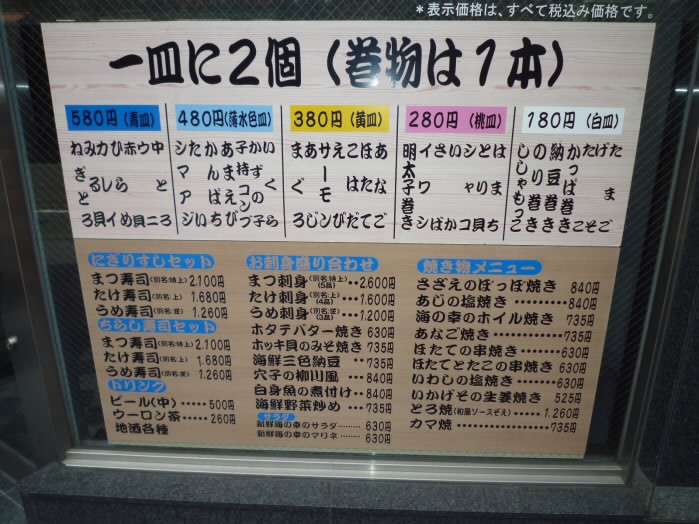 *表示価格は、すべて税込み価格です。
一皿に2個(巻物は1本)
580円(青皿)
中とろ
ウニ
赤貝
ひらめ
みる貝
ねぎとろ
480円(薄水色皿)
かずのこ
いくら
子持コンブ
あまえび
かんぱち
たい
シマアジ
380円(黄皿)
あなご
ほたて
こはだ
えび
サーモン
あじ
まぐろ
280円(桃皿)
とり貝
さば
いか
イワシ
明太子巻き
180円(白皿)
たまご
げそ
たこ
かっぱ巻き
納豆巻き
のり巻き
ししゃもっこ
にぎりすしセット
まつ寿司(別名:特上)2,100円
たけ寿司(別名:上)1,680円
うめ寿司(別名:並)1,260円
ちらし寿司セット
まつ寿司(別名:特上)2,100円
たけ寿司(別名:上)1,680円
うめ寿司(別名:並)1,260円
ドリンク
ビール(中)・・・・・・500円
ウーロン茶・・・・・260円
地酒各種
お刺身盛り合わせ
まつ刺身(別名:特上)(5品)・・2,600円
たけ刺身(別名:上)(4品)・・1,600円
うめ刺身(別名:並)(3品)・・1,200円
ホタテバター焼き 630円
ホッキ貝のみそ焼き 735円
海鮮三色納豆・・・735円
穴子の柳川風・・・840円
白身魚の煮付け・・840円
海鮮野菜炒め・・・735円
サラダ
新鮮海の幸のサラダ・・・・・・・・630円
新鮮海の幸のマリネ・・・・・・・・630円
焼き物メニュー
さざえのぽっぽ焼き 840円
あじの塩焼き・・・・・・・・・840円
海の幸のホイル焼き 735円
あなご焼き・・・・・・・・・・735円
ほたての串焼き・・・・・・630円
ほたてとたこの串焼き・630円
いわしの塩焼き・・・・・・630円
いかげその生姜焼き 525円
とろ焼(和風ソースぞえ)・・・1,260円
カマ焼・・・・・・・・・・・・・・・735円